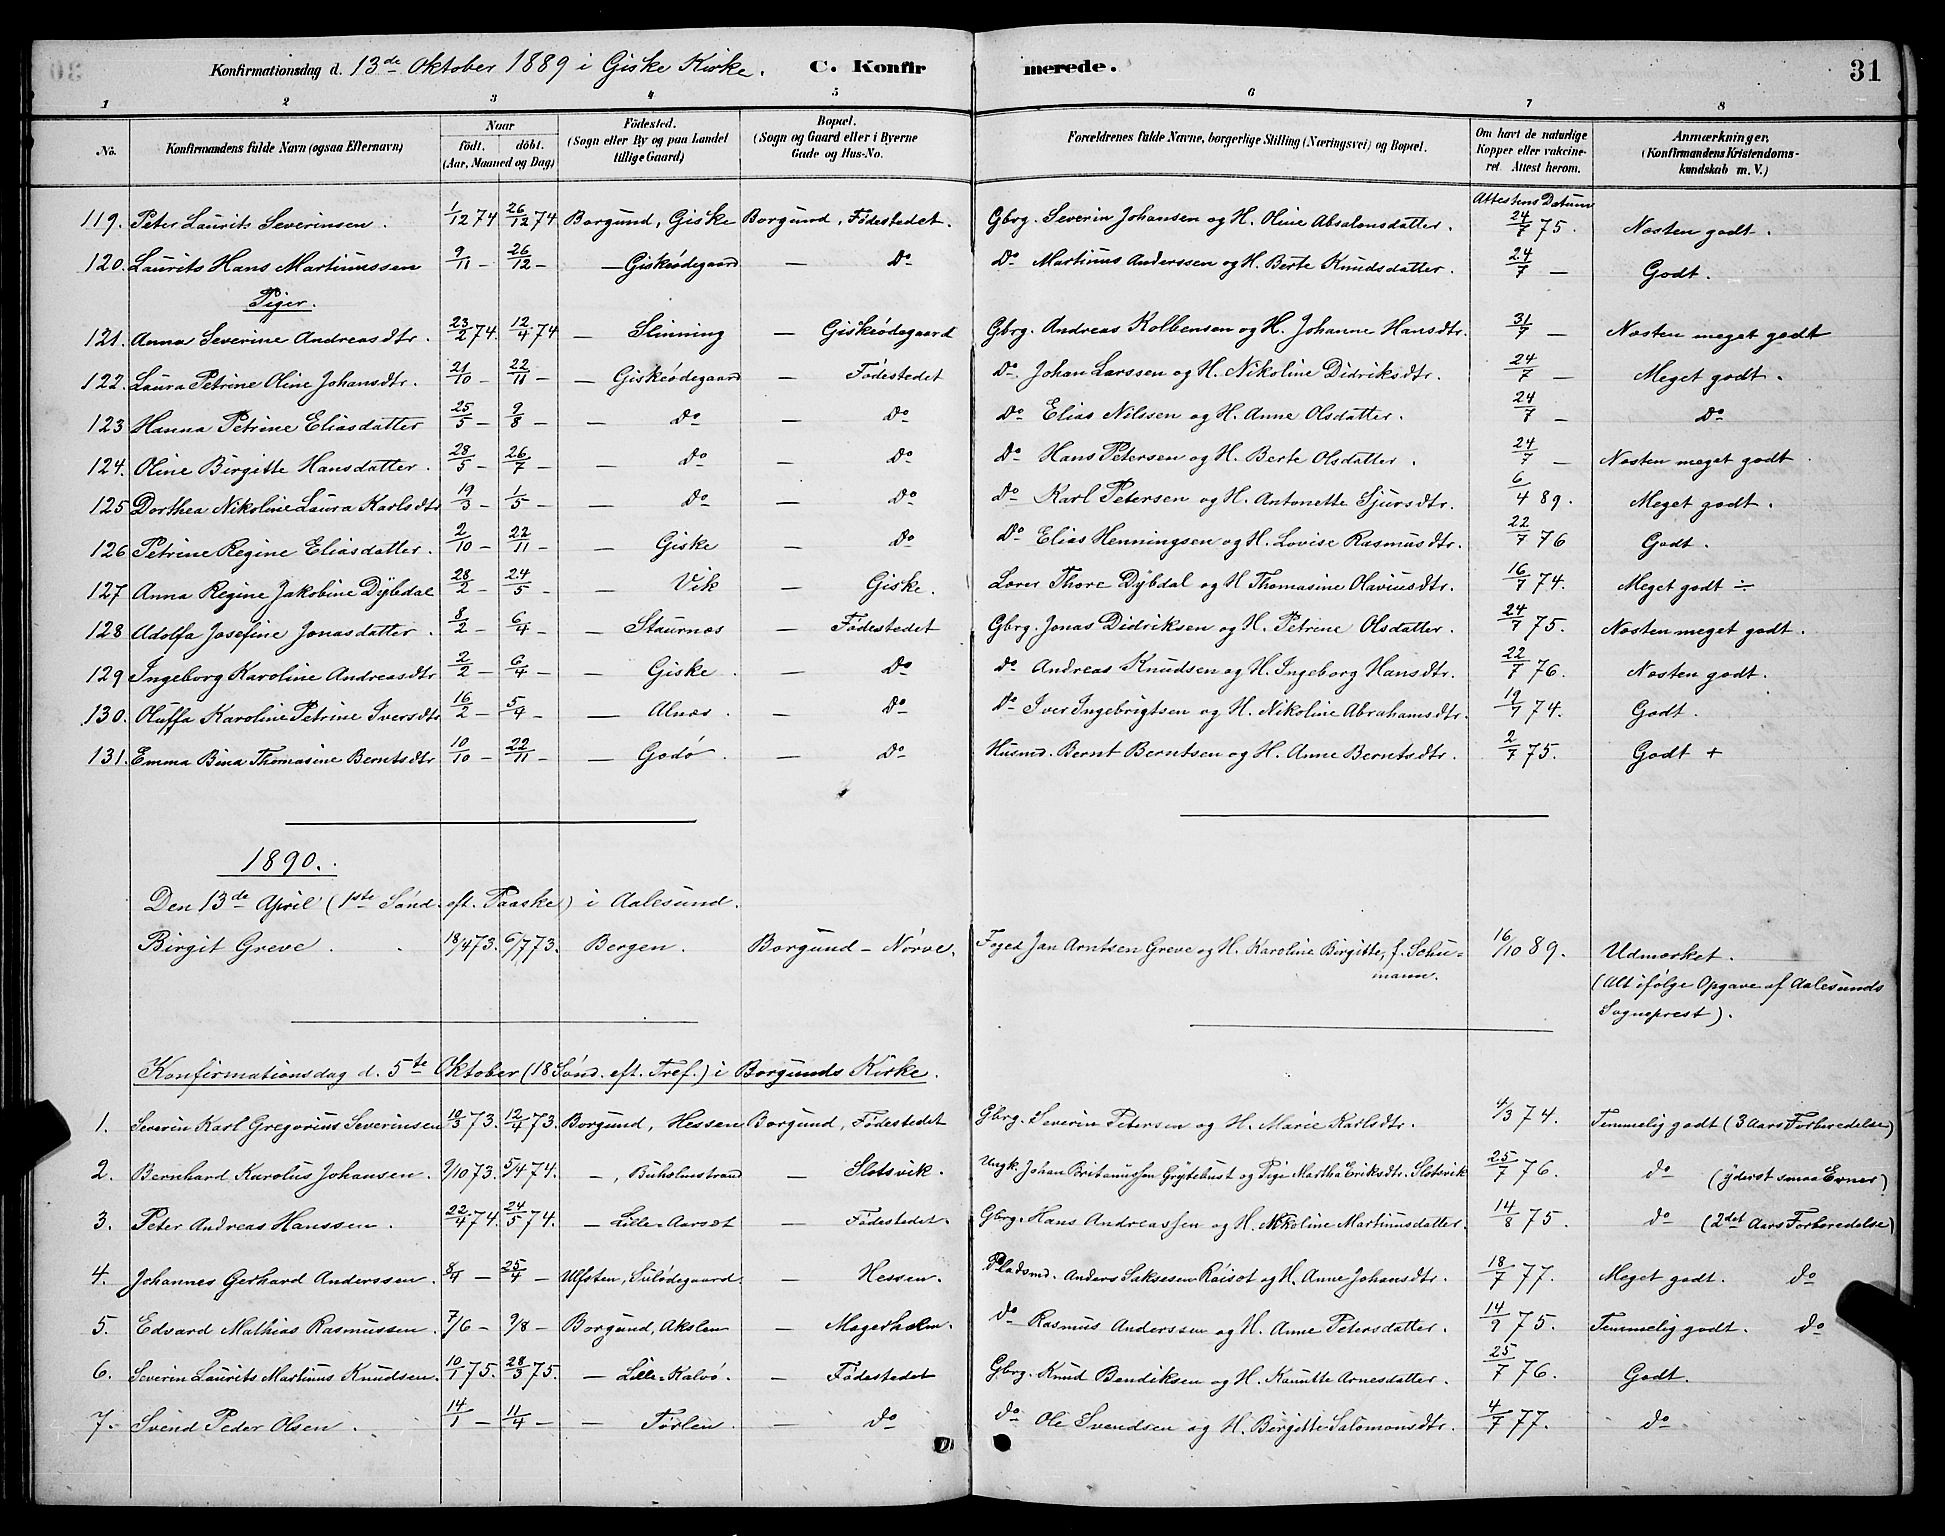 Konfirmationsdag d. 13de Oktober 1889 i Giske Kirke. C. Konfirmerede. 31
1 2 3 4 5 6 7 8
No. Konfirmandens fulde Navn (ogsaa Efternavn) Naar födt. döbt. (Aar, Maaned og Dag) Födested. (Sogn eller By og paa Landet tillige Gaard) Bopæl. (Sogn og Gaard eller i Byerne Gade og Hus-No. Forældrenes fulde Navne, borgerlige Stilling (Næringsvei) og Bopæl. Om havt de naturlige Kopper eller vakcineret. Attest herom. Anmærkninger, (Konfirmandens Kristendomskundskab m. V.)
Attestens Datum
119. Peter Laurits Severinsen. 1/12 74 26/12 74 Borgund, Giske Borgund, Fødestedet. Gbrg. Severin Johansen og H. Oline Absalonsdatter. 24/7 75. Næsten godt.
120. Laurits Hans Martinussen 9/11 – 26/12 – – Giskeødegaard – Do Do Martinus Anderssen og H. Berte Knudsdatter. 24/7 – Godt.
Piger.
121. Anna Severine Andreasdtr. 23/2 74. 12/4 74 – Slinning – Giskeødegaard Gbrg. Andreas Kolbensen og H. Johanne Hansdtr. 31/7 – Næsten meget godt
122. Laura Petrine Oline Johansdtr. 21/10 – 22/11 – – Giskeødegaard – Fødestedet Do. Johan Larssen og H. Nikoline Didriksdtr. 24/7 – Meget godt.
123 Hanna Petrine Eliasdatter 25/5 – 9/8 – – Do – Do Do Elias Nilssen og H. Anne Olsdatter. 24/7 – Do
124. Oline Birgitte Hansdatter. 28/5 – 26/7 – – Do – Do Do Hans Petersen og H. Berte Olsdatter. 24/7 – Næsten meget godt.
125 Dorthea Nikoline Laura Karlsdtr 19/3 – 1/5 – – Do – Do Do Karl Petersen og H. Antonette Sjursdtr. 6/4 89. Meget godt.
126 Petrine Regine Eliasdatter. 2/10 – 22/11 – – Giske – Do Do Elias Henningsen og H. Lovise Rasmusdtr. 22/7 76 Godt.
127 Anna Regine Jakobine Dybdal 28/2 – 24/5 – – Vik – Giske. Lærer Thore Dybdal og H Thomasine Olaviusdtr. 16/7 74. Meget godt ÷
128 Adolfa Josefine Jonasdatter. 8/2 – 6/4 – – Staurnæs – Fødestedet Gbrg. Jonas Didriksen og H. Petrine Olsdatter. 24/7 75. Næsten meget godt.
129 Ingeborg Karoline Andreasdtr 2/2 – 6/4 – – Giske. – Do do Andreas Knudsen og H. Ingeborg Hansdtr. 22/7 76. Næsten godt.
130. Oluffa Karoline Petrine Iversdtr 16/2 – 5/4 – – Alnæs. – Do Do Iver Ingebrigtsen og H. Nikoline Abrahamsdtr. 19/7 74. Godt.
131. Emma Bina Thomasine Berntsdtr 10/10 – 22/11 – – Godø. – Do Husmd. Bernt Berntsen og H. Anne Berntsdtr. 2/7 75. Godt +
1890.
Den 13de April (1ste Sønd. eft. Paaske) i Aalesund.
Birgit Greve. 18/4 73. 6/7 73. Bergen. Borgund – Nørve. Foged Jan Arntsen Greve og H. Karoline Birgitte, f. Schumann. 16/10 89. Udmærket.
(Alt ifølge Opgave af Aalesunds
Sogneprest).
Konfirmationsdag d. 5te Oktober (18 Sønd. eft. Tref.) i Borgunds Kirke.
1. Severin Karl Gregorius Severinsen 10/3 73. 12/4 73. Borgund, Hessen Borgund, Fødestedet Gbrg. Severin Petersen og H. Marie Karlsdtr. 4/3 74. Temmelig godt (3 Aars Forberedelse)
2. Bernhard Karolus Johansen. 9/10 73. 5/4 74. –, Buholmstrand – Slotsvik. Ungk. Johan Britanussen Grytebust og Pige Martha Eriksdtr. Slotsvik 25/7 76. do (yderst smaa Evner)
3. Peter Andreas Hanssen. 22/4 74. 24/5 74. – Lille-Aarset – Fødestedet. Gbrg. Hans Andreassen og H. Nikoline Martinusdatter. 14/8 75. do (2det Aars Forberedelse)
4. Johannes Gerhard Anderssen. 8/4 – 25/4 – Ulfsten, Sulødegaard. – Hessen. Pladsmd. Anders Saksesen Røisot og H. Anne Johansdtr. 18/7 77. Meget godt. do
5. Edvard Mathias Rasmussen. 7/6 – 9/8 – Borgund, Akslen – Magerholm. do Rasmus Anderssen og H. Anne Petersdatter. 14/9 75. Temmelig godt. do
6. Severin Laurits Martinus Knudsen. 10/1 75. 28/3 75. – Lille-Kalvø. – Fødestedet Gbrg. Knud Bendiksen og H. Kanutte Arnesdatter. 25/7 76. Godt.
7. Svend Peder Olsen. 14/1 – 11/4 – – Tørlen. – do do Ole Svendsen og H. Birgitte Salomonsdtr. 4/7 77. do